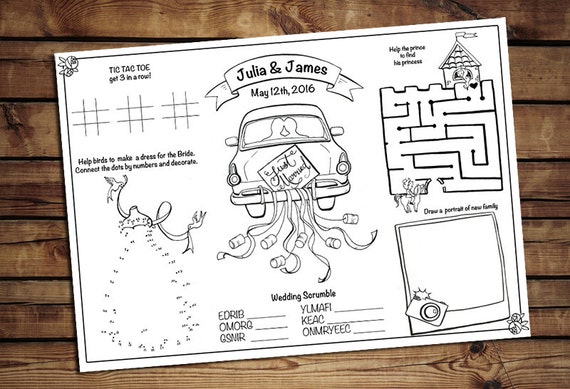 TIC TAC TOE
get 3 in a row!
Help birds to make a dress for the Bride.
Connect the dots by numbers and decorate.
Julia & James
May 12th, 2016
Just
Married
Help the prince
to find
his princess
Draw a portrait of new family
Wedding Scrumble
EDRIB
OMORG
GSNIR
YLMAFI
KEAC
ONMRYEEC